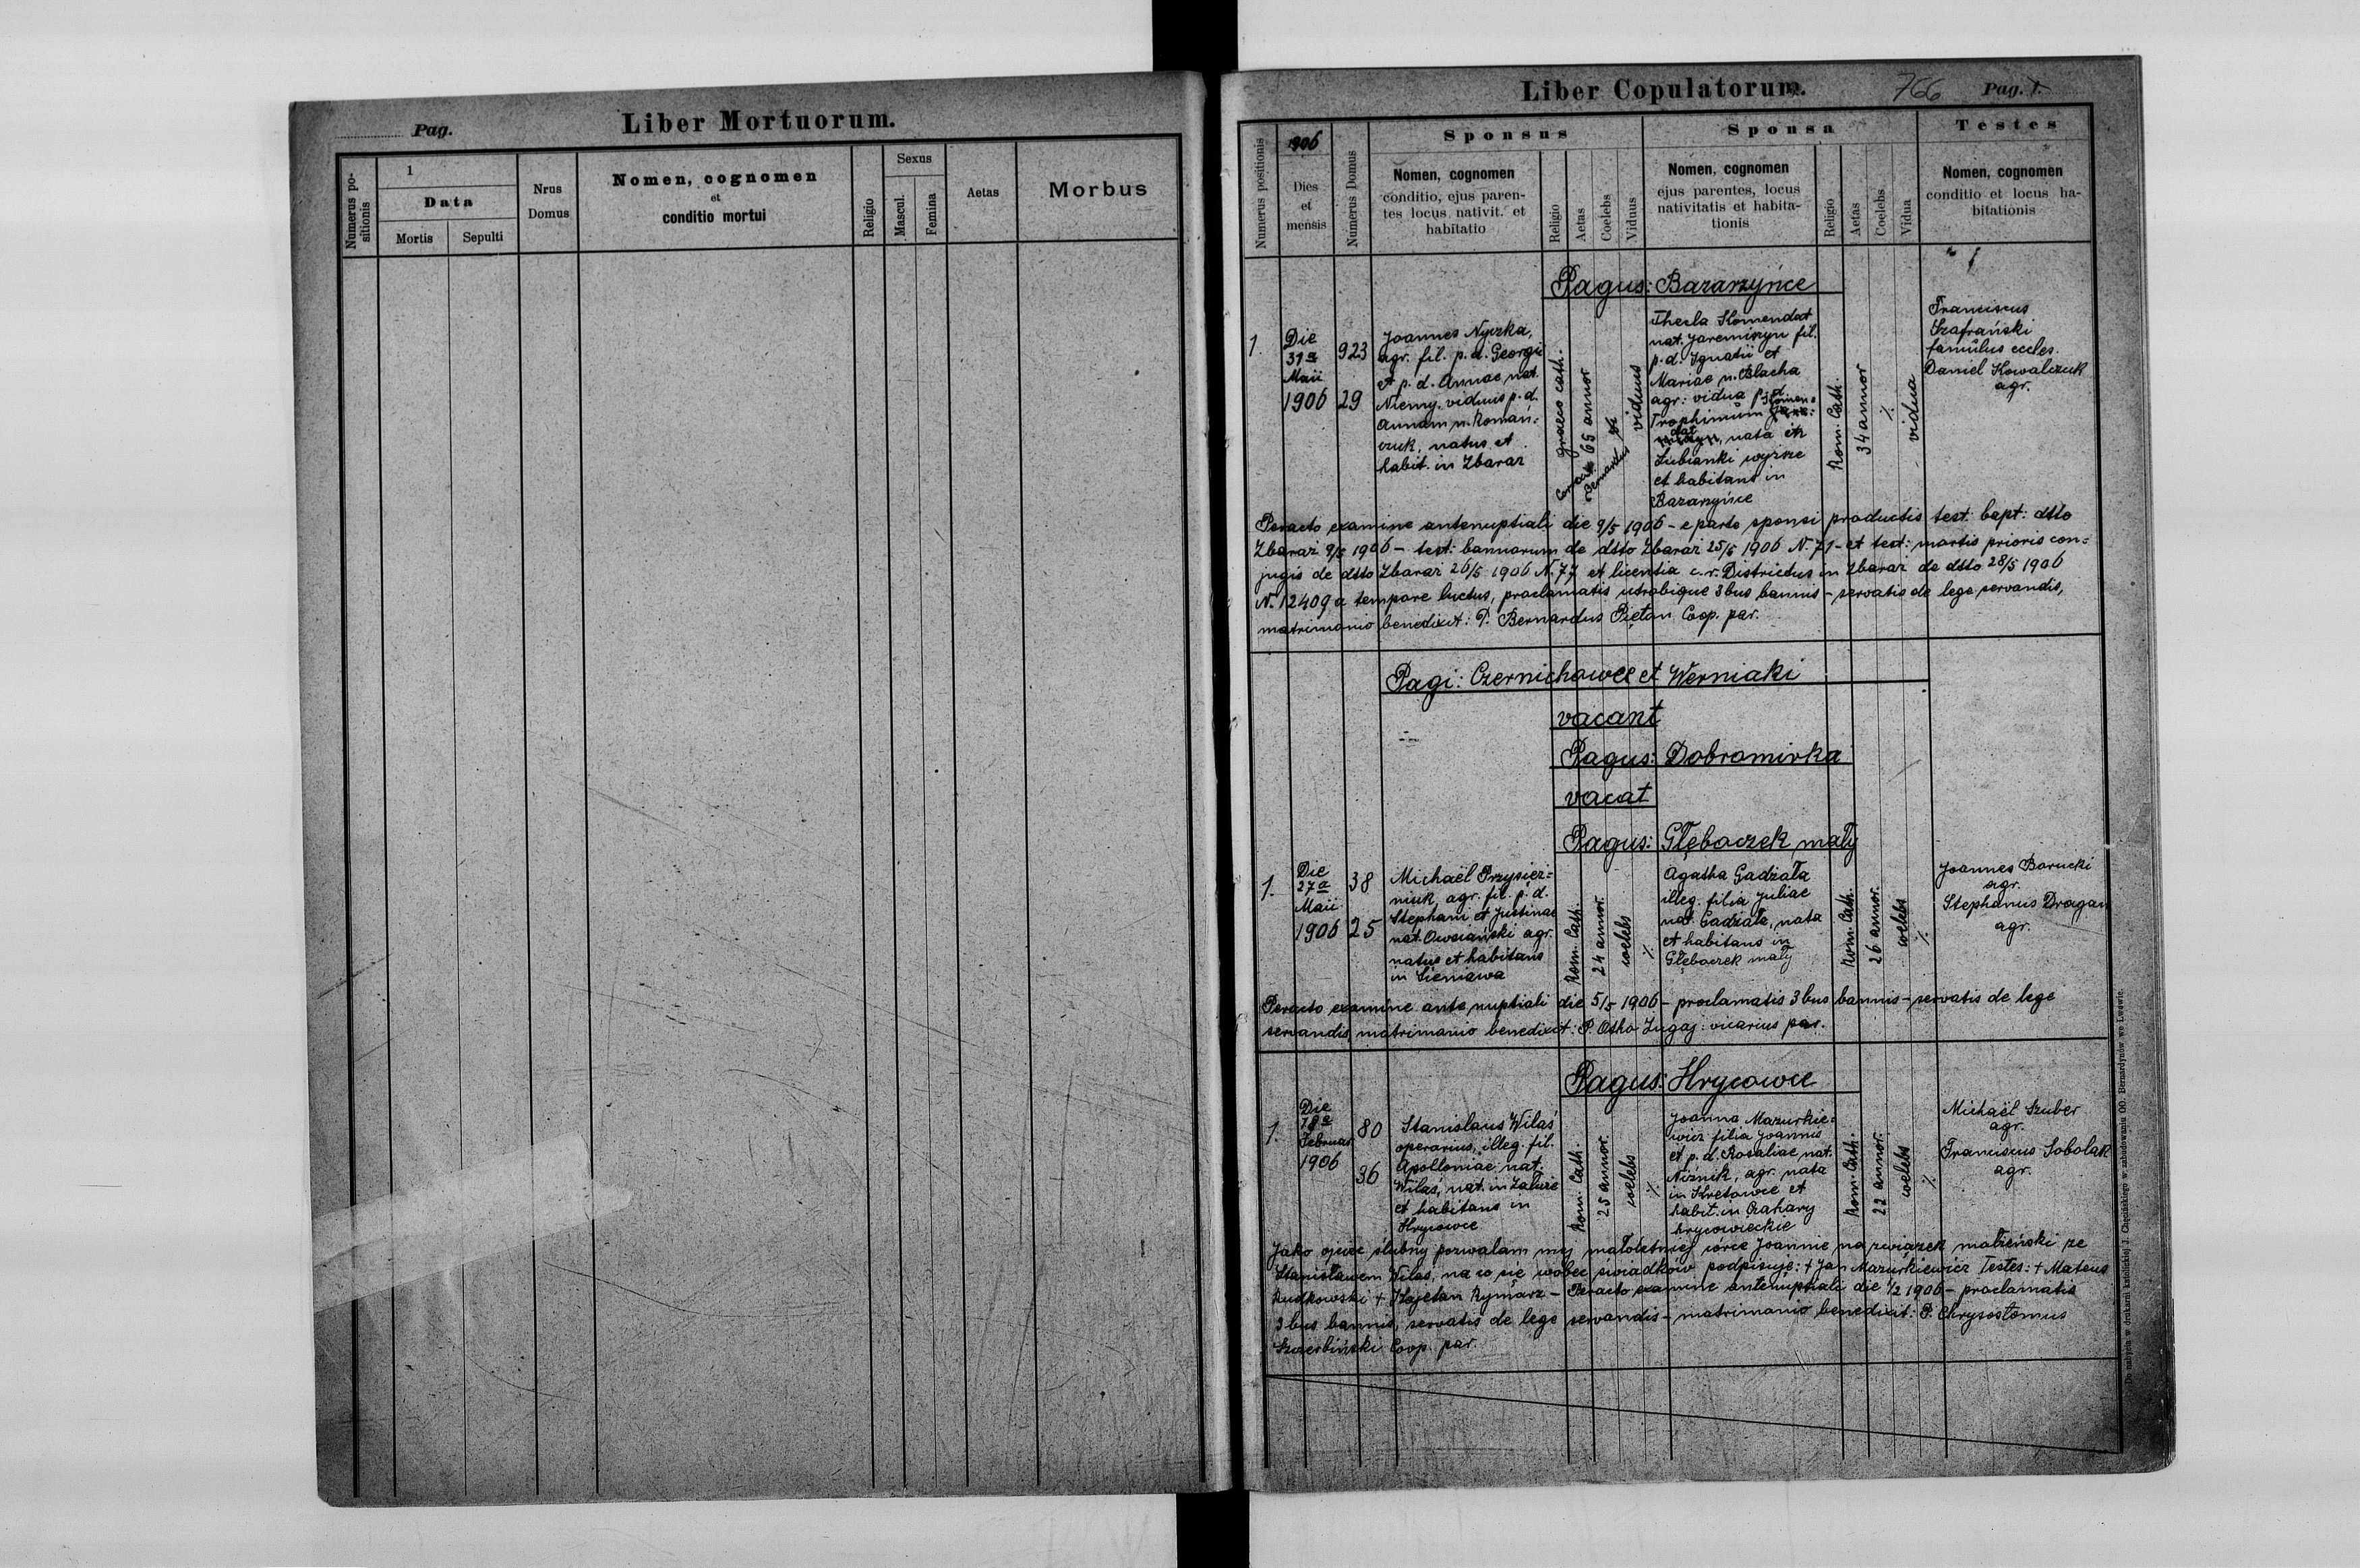 Pag.
Liber Mortuorum.
Numerus po-
sitionis
1
Data
Mortis
Sepulti
Nrus
Domus
Nomen, cognomen
et
conditio mortui
Religio
Sexus
Mascul.
Femina
Aetas
Morbus
Liber Copulatorum.
766
Pag. 1.
Numerus positionis
1906
Dies
et
mensis
Numerus Domus
Sponsus
Nomen, cognomen
conditio, ejus paren-
tes locus nativit. et
habitatio
Religio
Aetas
Coelebs
Viduus
Sponsa
Nomen, cognomen
ejus parentes, locus
nativitatis et habita-
tionis
Religio
Aetas
Coelebs
Vidua
Testes
Nomen, cognomen
conditio et locus ha-
bitationis
Pagus: Bazarzyńce
1.
Die
31a
Maii
1906
923
29
Joannes Nyczka,
agr. fil. p. d. Georgii
et p. d. Annae nat.
Niemy. viduus p. d.
Annam n. Romań=
czuk, natus et
habit. in Zbaraż
graeco cath.
65 annor
viduus
Thecla Komendat
nat. Jaremiszyn fil.
p. d. Ignatii et
Mariae n. Blacha
agr: vidua p. d.
Trophimum Komen=
dat, nata in
Łubianki wyższe
et habitans in
Bazarzyńce
Rom. Cath.
34 annor
%
vidua
Franciscus
Szafrański
famulus eccles.
Daniel Kowalczuk
agr.
Peracto examine antenuptiali die 9/5 1906 - e parte sponsi productis test: bapt: dtto
Zbaraż 9/5 1906 - test: bannorum de dtto Zbaraż 25/5 1906 N. 71 - et test: mortis prioris con=
jugis de dtto Zbaraż 26/5 1906 N. 77 et licentia c. r. Districtus in Zbaraż de dtto 28/5 1906
N. 12409 a tempore luctus, proclamatis utrobique 3bus bannis - servatis de lege servandis,
matrimonio benedixit: P. Bernardus Piętan Coop. par.
Pagi: Czernichowce et Werniaki
vacant
Pagus: Dobromirka
vacat
Pagus: Głęboczek mały
1.
Die
27a
Maii
1906
38
25
Michaël Przysież=
niuk, agr. fil. p. d.
Stephani et Justinae
nat. Owsiański agr.
natus et habitans
in Sieniawa
Rom. Cath.
24 annor.
coelebs
%
Agatha Gadzała
illeg. filia Juliae
nat. Gadzała, nata
et habitans in
Głęboczek mały
Rom. Cath.
26 annor.
coelebs
%
Joannes Borucki
agr.
Stephanus Dragan
agr.
Peracto examine ante nuptiali die 5/5 1906 - proclamatis 3bus bannis - servatis de lege
servandis, matrimonio benedixit: P. Otho Zugaj: vicarius par.
Pagus: Hrycowce
1.
Die
18a
Februar
1906
80
36
Stanislaus Wilaś
operarius, illeg. fil.
Apolloniae nat.
Wilaś, nat. in Załuże
et habitans in
Hrycowce
Rom. Cath.
25 annor.
coelebs
%
Joanna Mazurkie=
wicz filia Joannis
et p. d. Rosaliae nat.
Niźnik, agr. nata
in Kretowce et
habit. in Zahary
hrycowieckie
Rom. Cath.
22 annor.
coelebs
%
Michaël Szuber
agr.
Franciscus Sobolak
agr.
Jako ojciec ślubny pozwalam mej małoletniej córce Joannie na związek małżeński ze
Stanisławem Wilaś, na co się wobec świadków podpisuję: + Jan Mazurkiewicz Testes: + Mateus
Rudkowski + Kajetan Rymarz - Peracto examine antenuptiali die 1/2 1906 - proclamatis
3bus bannis, servatis de lege servandis - matrimonio benedixit: P. Chrysostomus
Szczerbiński Coop. par.
Do nabycia w drukarni katolickiej J. Chęcińskiego w zabudowaniu OO. Bernardynów we Lwowie.